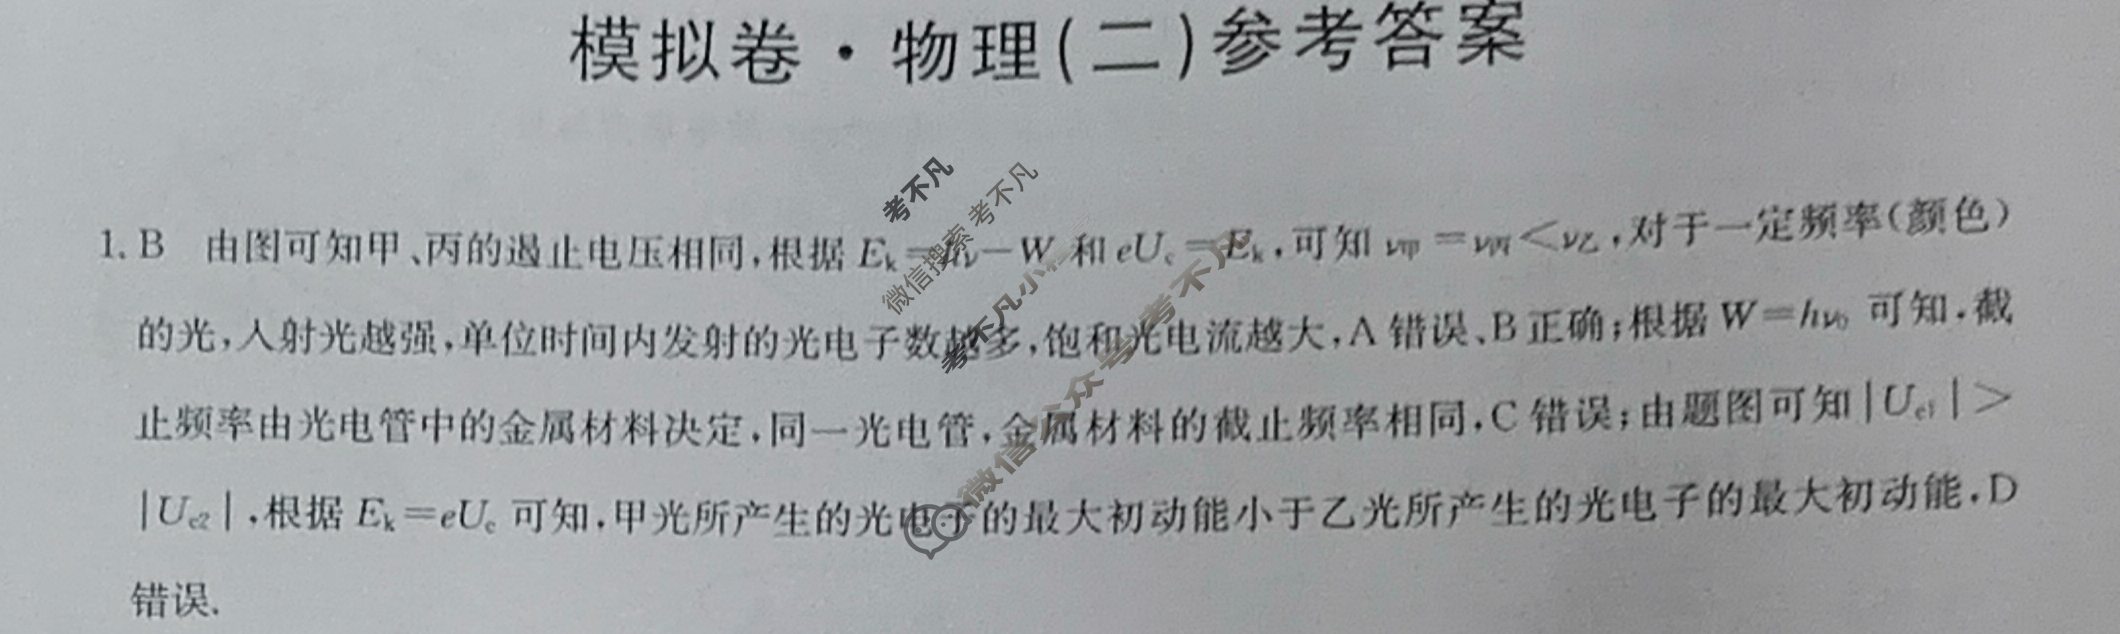 模拟卷·物理(二)参考答案
1. B 由图可知甲、丙的遏止电压相同,根据 Eₖ=hν-W 和 eU꜀=Eₖ,可知 ν甲=ν丙<ν乙,对于一定频率(颜色)
的光,入射光越强,单位时间内发射的光电子数越多,饱和光电流越大,A 错误、B 正确;根据 W=hν₀ 可知,截
止频率由光电管中的金属材料决定,同一光电管,金属材料的截止频率相同,C 错误;由题图可知|Uc1|>
|Uc2|,根据 Eₖ=eU꜀ 可知,甲光所产生的光电子的最大初动能小于乙光所产生的光电子的最大初动能,D
错误.
考不凡
微信搜索 考不凡
考不凡小
微信公众号 考不凡